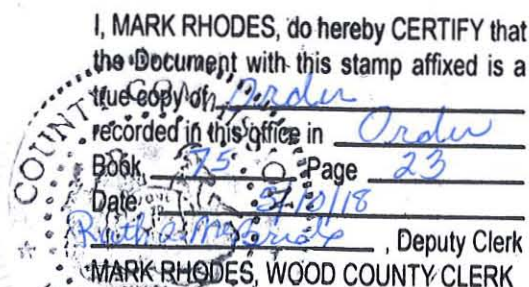 I, MARK RHODES, do hereby CERTIFY that
the Document with this stamp affixed is a
true copy of Order
recorded in this office in Order
Book 75 Page 23
Date 5/10/18
Ruth a , Deputy Clerk
MARK RHODES, WOOD COUNTY CLERK
COUNTY